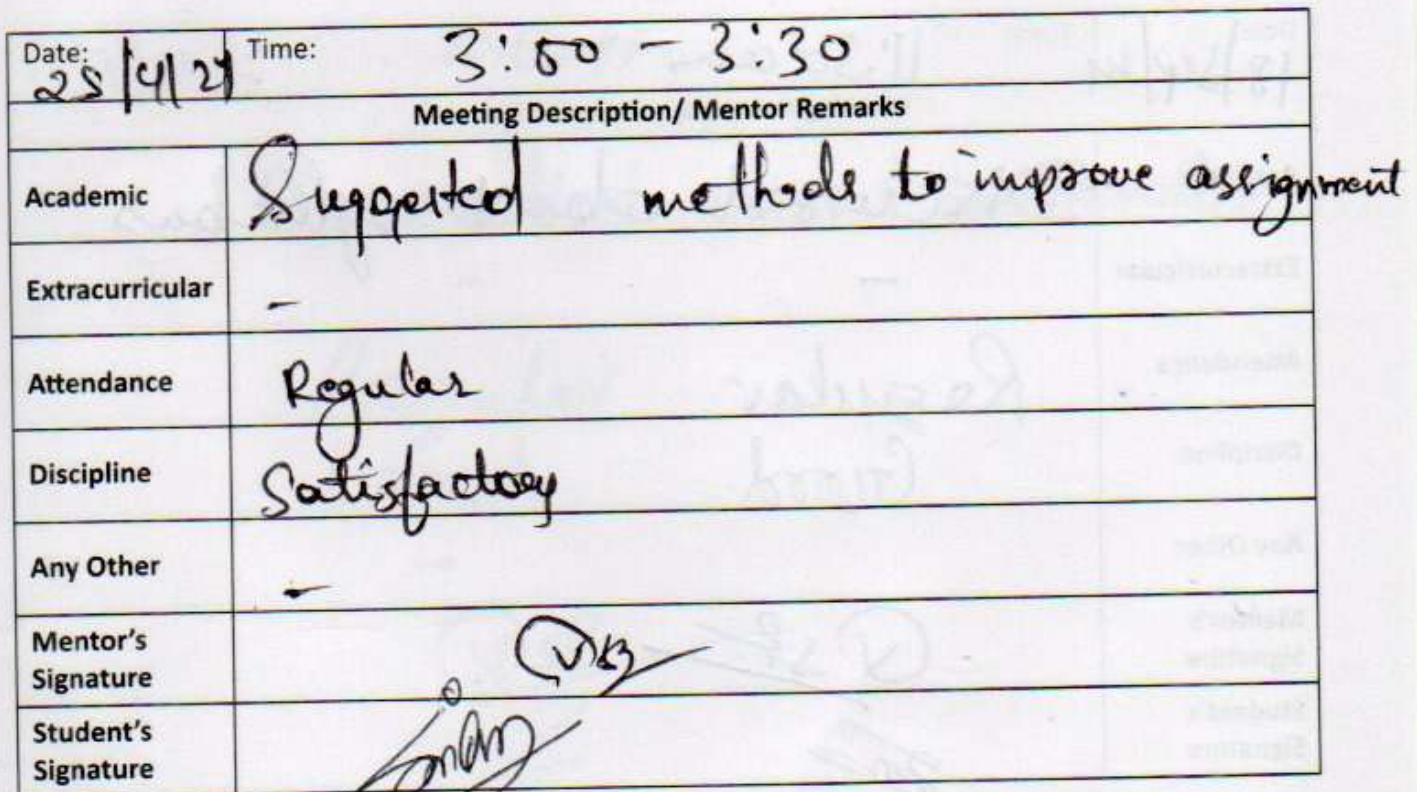 Date: 25/4/24 Time: 3:00 - 3:30
Meeting Description/ Mentor Remarks
Academic Suggested methods to improve assignment
Extracurricular -
Attendance Regular
Discipline Satisfactory
Any Other -
Mentor's
Signature
Student's
Signature